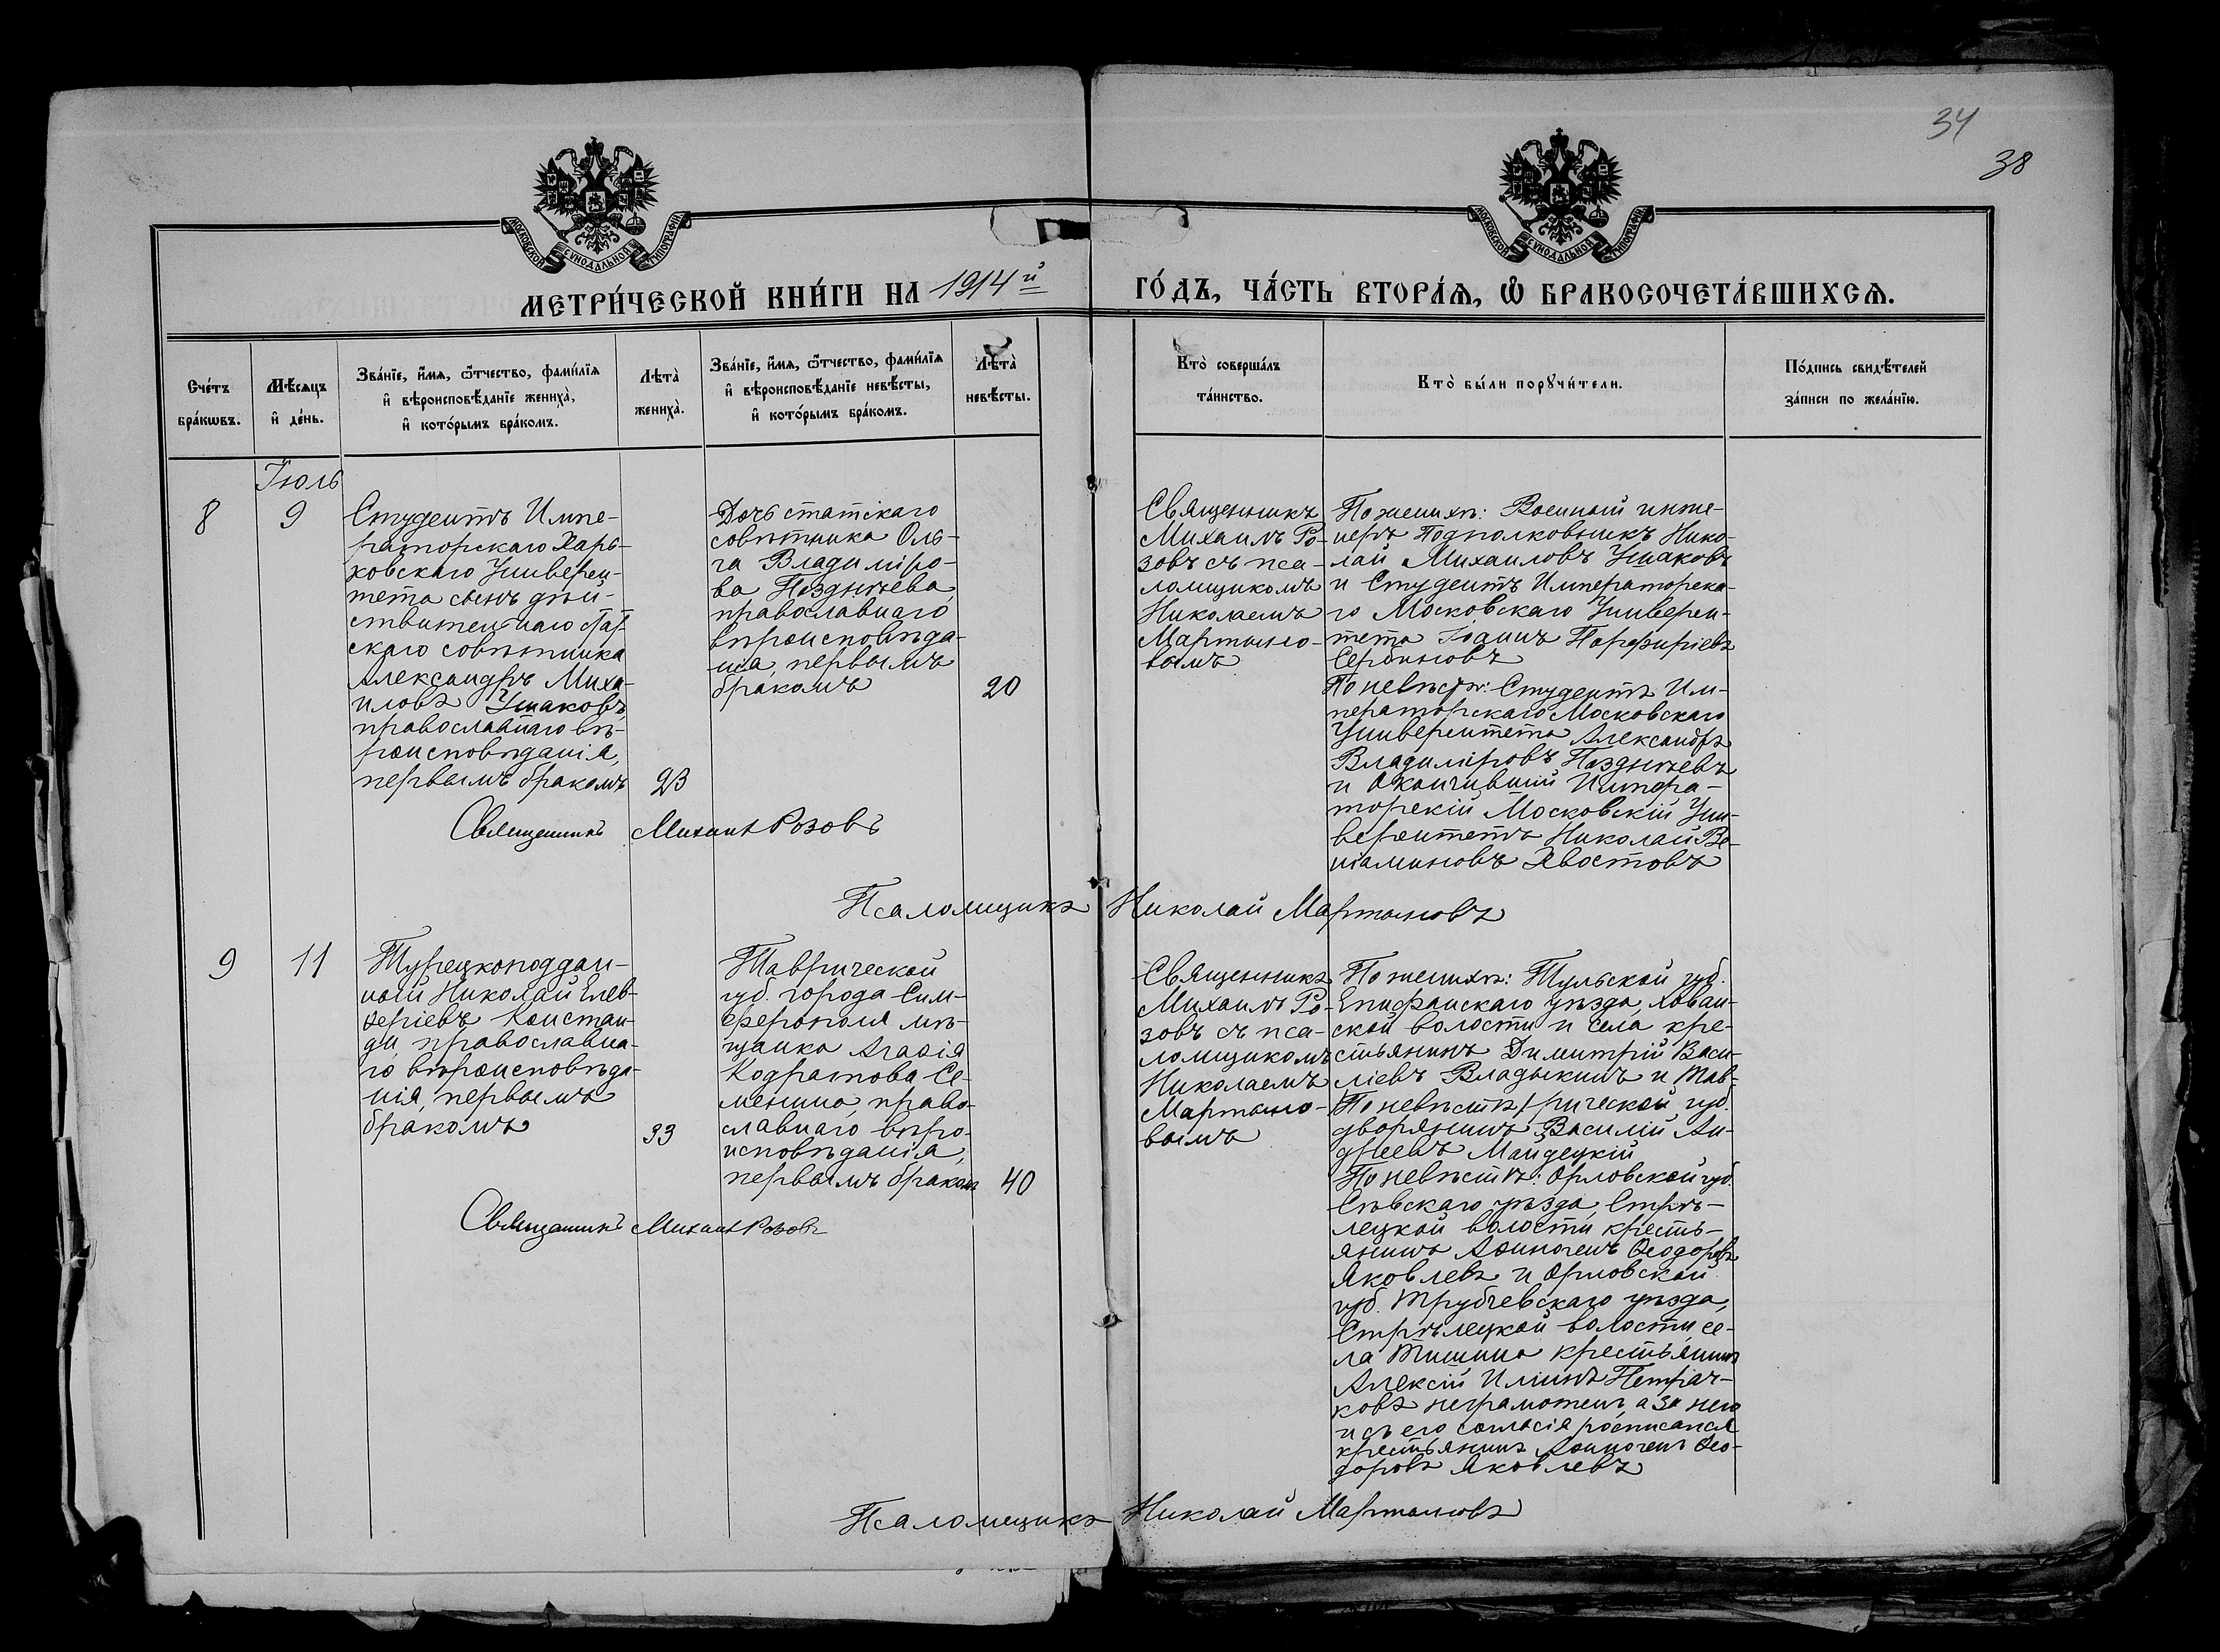 34
38
МОСКОВСКОЙ СѴНОДАЛЬНОЙ ТИПОГРАФІИ
МОСКОВСКОЙ СѴНОДАЛЬНОЙ ТИПОГРАФІИ
МЕТРИ́ЧЕСКОЙ КНИ́ГИ НА 1914й ГО́ДЪ, ЧА́СТЬ ВТОРА́Я, Ѽ БРАКОСОЧЕТА́ВШИХСЯ.
Сче́тъ
бра́кѡвъ.
Мѣ́сяцъ
и҆ де́нь.
Зва́нїе, и҆́мя, ѻ҆́тчество, фами́лїя
и҆ вѣроисповѣ́данїе жениха̀,
и҆ кото́рымъ бра́комъ.
Лѣта̀
жениха̀.
Зва́нїе, и҆́мя, ѻ҆́тчество, фами́лїя
и҆ вѣроисповѣ́данїе невѣ́сты,
и҆ кото́рымъ бра́комъ.
Лѣта̀
невѣ́сты.
Кто̀ соверша́лъ
та́инство.
Кто̀ бы́ли порꙋчи́тели.
По́дпись свидѣ́телей
за́писи по жела́нїю.
Іюль
8
9
Студентъ Импе-
раторскаго Харь-
ковскаго Универси-
тета сынъ дѣй-
ствительнаго стат-
скаго совѣтника
Александръ Миха-
иловъ Ушаковъ,
православнаго вѣ-
роисповѣданія,
первымъ бракомъ
23
Дочь статскаго
совѣтника Оль-
га Владиміро-
ва Позднѣева,
православнаго
вѣроисповѣда-
нія, первымъ
бракомъ
20
Священникъ
Михаилъ Ро-
зовъ съ пса-
ломщикомъ
Николаемъ
Мартыно-
вымъ
По женихѣ: Военный инже-
неръ Подполковникъ Нико-
лай Михаиловъ Ушаковъ
и Студентъ Императорска-
го Московскаго Универси-
тета Іоаннъ Порфиріевъ
Сербиновъ
По невѣстѣ: Студентъ Им-
ператорскаго Московскаго
Университета Александръ
Владиміровъ Позднѣевъ
и Окончившій Импера-
торскій Московскій Уни-
верситетъ Николай Ве-
ніаминовъ Хвостовъ
Священникъ Михаилъ Розовъ
Псаломщикъ Николай Мартыновъ
9
11
Турецкоподдан-
ный Николай Елев-
ѳеріевъ Констан-
ди, православна-
го вѣроисповѣда-
нія, первымъ
бракомъ
33
Таврической
губ. города Сим-
ферополя мѣ-
щанка Агаѳія
Кодратова Се-
менина, право-
славнаго вѣро-
исповѣданія,
первымъ бракомъ
40
Священникъ
Михаилъ Ро-
зовъ съ пса-
ломщикомъ
Николаемъ
Мартыно-
вымъ
По женихѣ: Тульской губ.
Епифанскаго уѣзда, Хован-
ской волости и села кре-
стьянинъ Димитрій Васи-
ліевъ Владыкинъ и Тав-
По невѣстѣ/рической губ.
дворянинъ Василій Ан-
дреевъ Мандецкій
По невѣстѣ: Орловской губ.
Сѣвскаго уѣзда, Стрѣ-
лецкой волости кресть-
янинъ Аѳиногенъ Ѳеодоровъ
Яковлевъ и Орловской
губ. Трубчевскаго уѣзда,
Стрѣлецкой волости, се-
ла крестьянинъ
Алексій Ильинъ
неграмотенъ, а за него
и съ его согласія росписался
крестьянинъ Аѳиногенъ Ѳео-
доровъ Яковлевъ
Священникъ Михаилъ Розовъ
Псаломщикъ Николай Мартыновъ